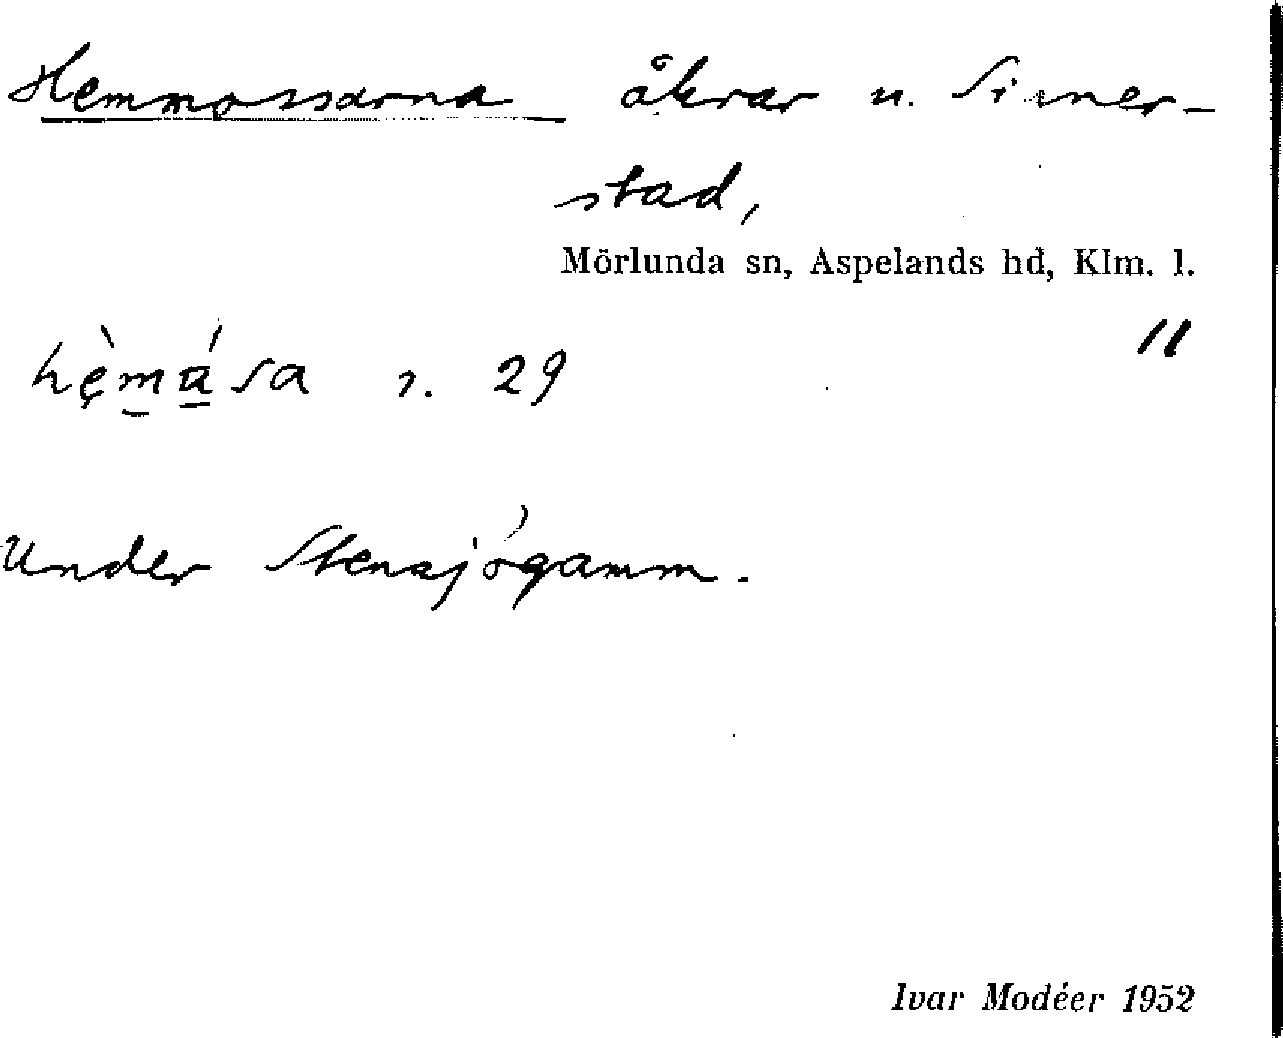 Hemmossarna åkrar u. Sinner-
stad,
Mörlunda sn, Aspelands hd, Klm. l.
11
hę̀má̱sa s. 29
Under Stensjögamm.
Ivar Modéer 1952